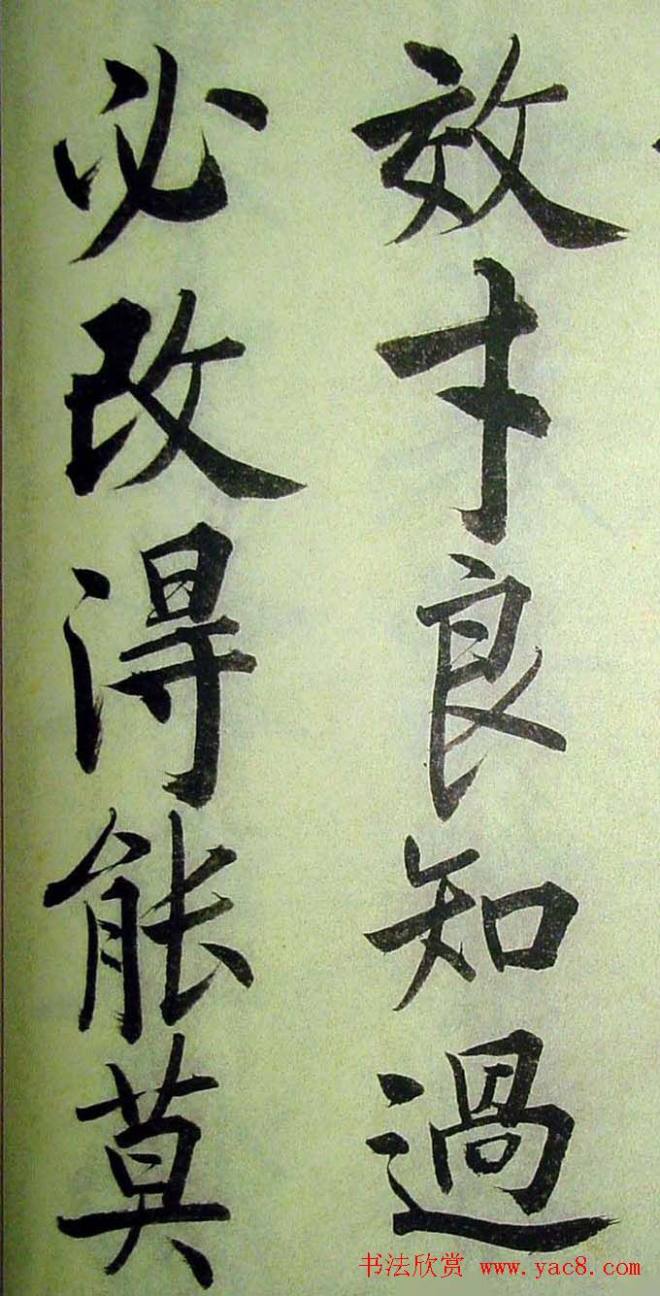 效才良知過
必改得能莫
书法欣赏 www.yac8.com